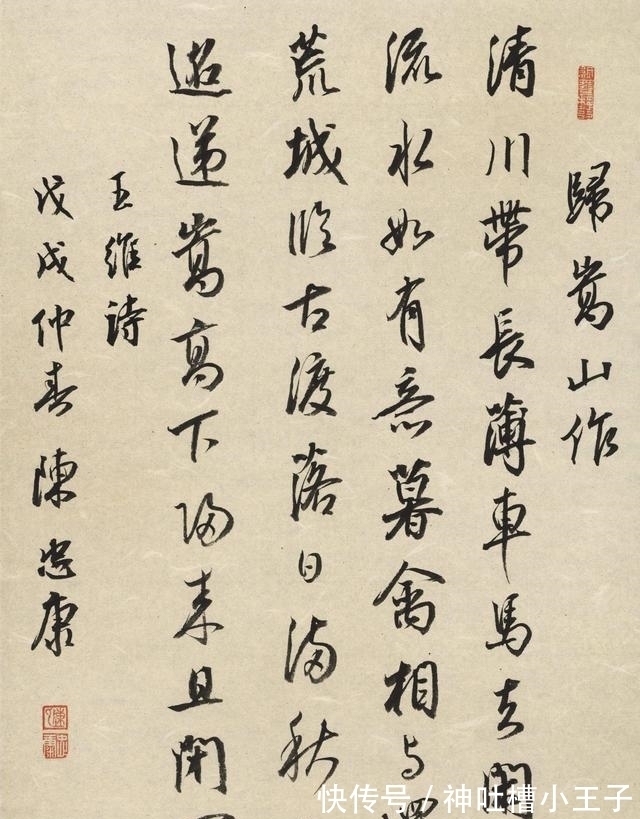 歸嵩山作
清川帶長薄車馬去閑
流水如有意暮禽相与
荒城臨古渡落日滿秋
迢遞嵩高下歸来且閉
王維詩
戊戌仲春陳忠康
快传号/神吐槽小王子